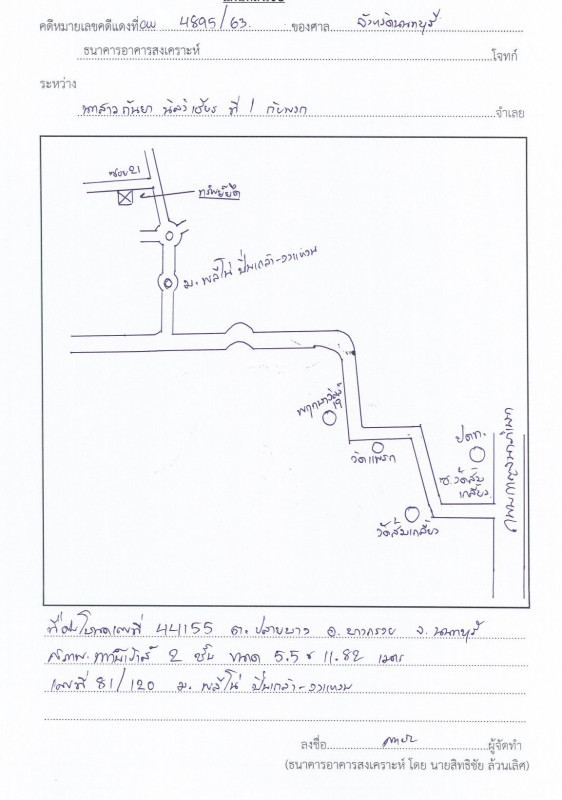 คดีหมายเลขคดีแดงที่ ผบ 4895/63 ของศาล จังหวัดนนทบุรี
ธนาคารอาคารสงเคราะห์ โจทก์
ระหว่าง
นางสาวกันยา ที่ 1 กับพวก จำเลย
ซอย 21
ทรัพย์ยึด
ม. พลีโน่ ปิ่นเกล้า-วงแหวน
พฤกษาวิลล์ 19
วัดแพรก
ปตท.
ซ. วัดส้มเกลี้ยง
วัดส้มเกลี้ยง
ถนนกาญจนาภิเษก
ที่ดินโฉนดเลขที่ 44155 ต. ปลายบาง อ. บางกรวย จ. นนทบุรี
สภาพ. ทาวน์เฮ้าส์ 2 ชั้น ขนาด 5.5 x 11.82 เมตร
เลขที่ 81/120 ม. พลีโน่ ปิ่นเกล้า-วงแหวน
ลงชื่อ ผู้จัดทำ
(ธนาคารอาคารสงเคราะห์ โดย นายสิทธิชัย ล้วนเลิศ)